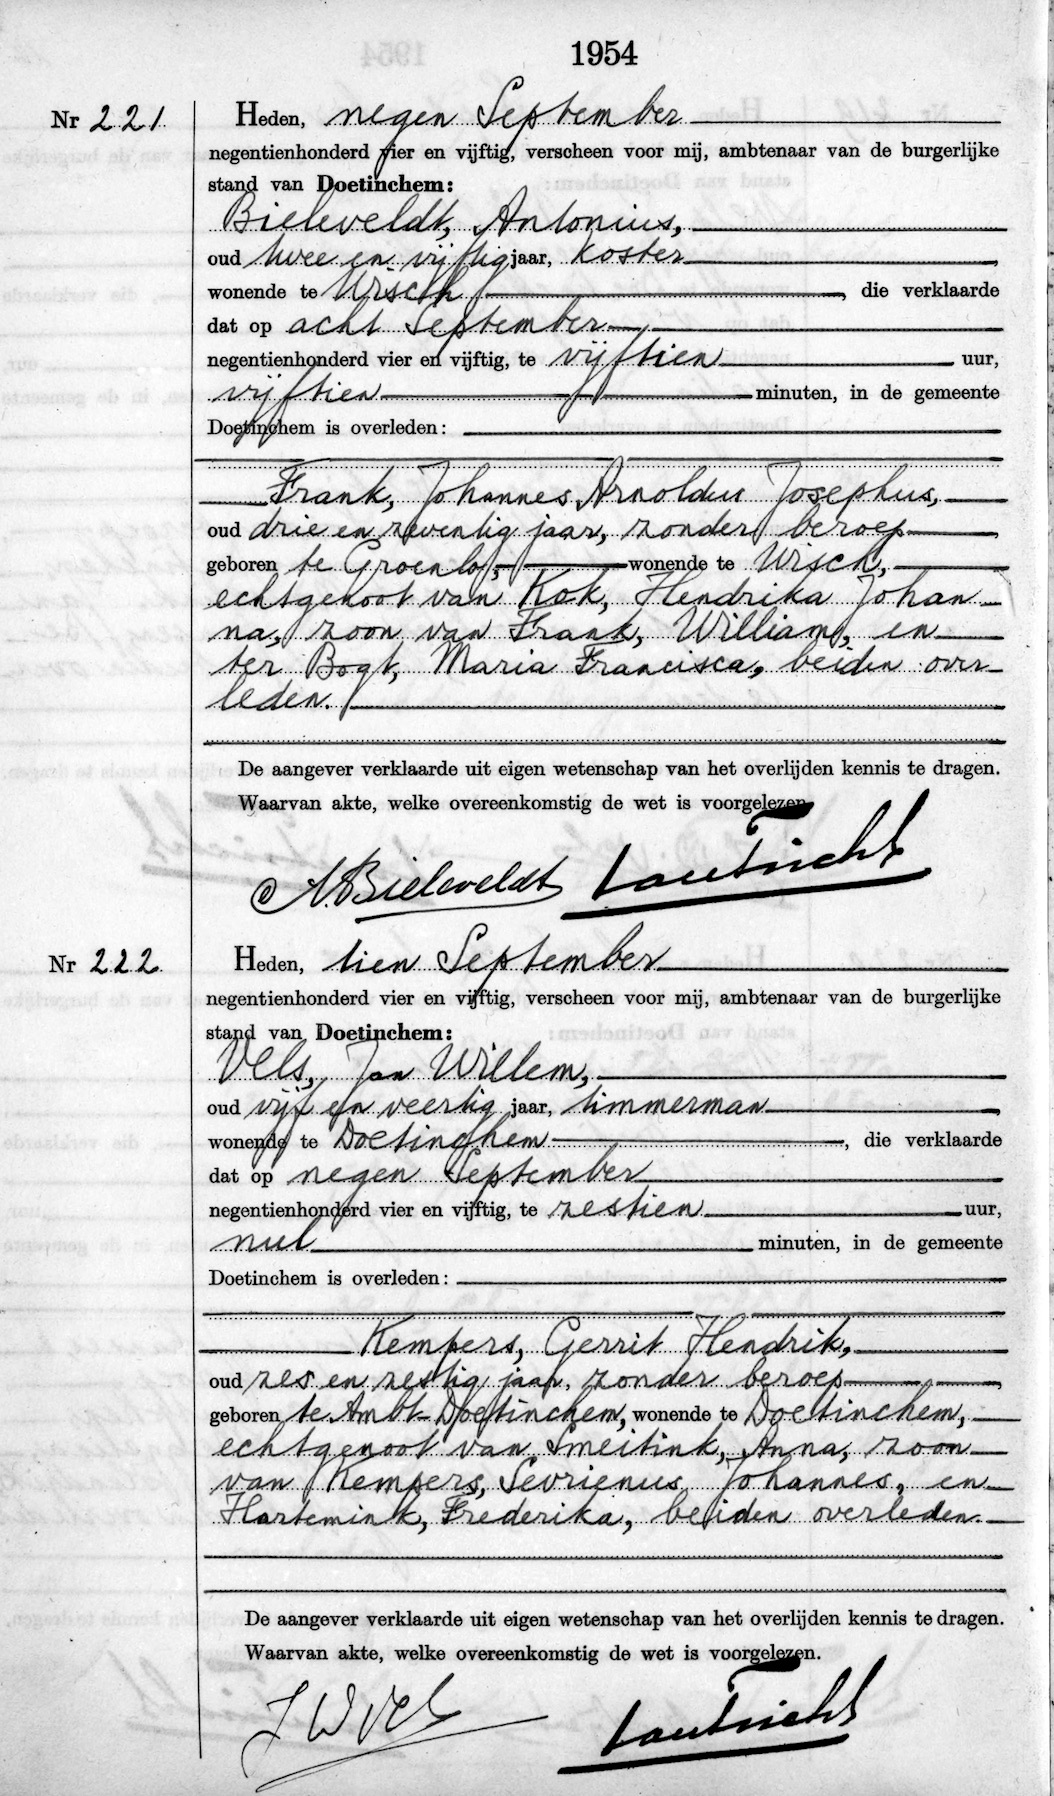 1954
Nr 221. Heden, negen September
negentienhonderd vier en vijftig, verscheen voor mij, ambtenaar van de burgerlijke
stand van Doetinchem:
Bieleveldt, Antonius,
oud twee en vijftig jaar, koster
wonende te Wisch, die verklaarde
dat op acht September
negentienhonderd vier en vijftig, te vijftien uur,
vijftien minuten, in de gemeente
Doetinchem is overleden:
Frank, Johannes Arnoldus Josephus,
oud drie en zeventig jaar, zonder beroep
geboren te Groenlo, wonende te Wisch,
echtgenoot van Kok, Hendrika Johan
na, zoon van Frank, William, en
ter Bogt, Maria Francisca, beiden over
leden.
De aangever verklaarde uit eigen wetenschap van het overlijden kennis te dragen.
Waarvan akte, welke overeenkomstig de wet is voorgelezen
A. Bieleveldt
Nr 222. Heden, tien September
negentienhonderd vier en vijftig, verscheen voor mij, ambtenaar van de burgerlijke
stand van Doetinchem:
Vels, Jan Willem,
oud vijf en veertig jaar, timmerman
wonende te Doetinchem, die verklaarde
dat op negen September
negentienhonderd vier en vijftig, te zestien uur,
nul minuten, in de gemeente
Doetinchem is overleden:
Kempers, Gerrit Hendrik,
oud zes en zestig jaar, zonder beroep
geboren te Ambt-Doetinchem, wonende te Doetinchem,
echtgenoot van Smeitink, Anna, zoon
van Kempers, Sevrienus Johannes, en
Hartemink, Frederika, beiden overleden.
De aangever verklaarde uit eigen wetenschap van het overlijden kennis te dragen.
Waarvan akte, welke overeenkomstig de wet is voorgelezen.
J W Vels